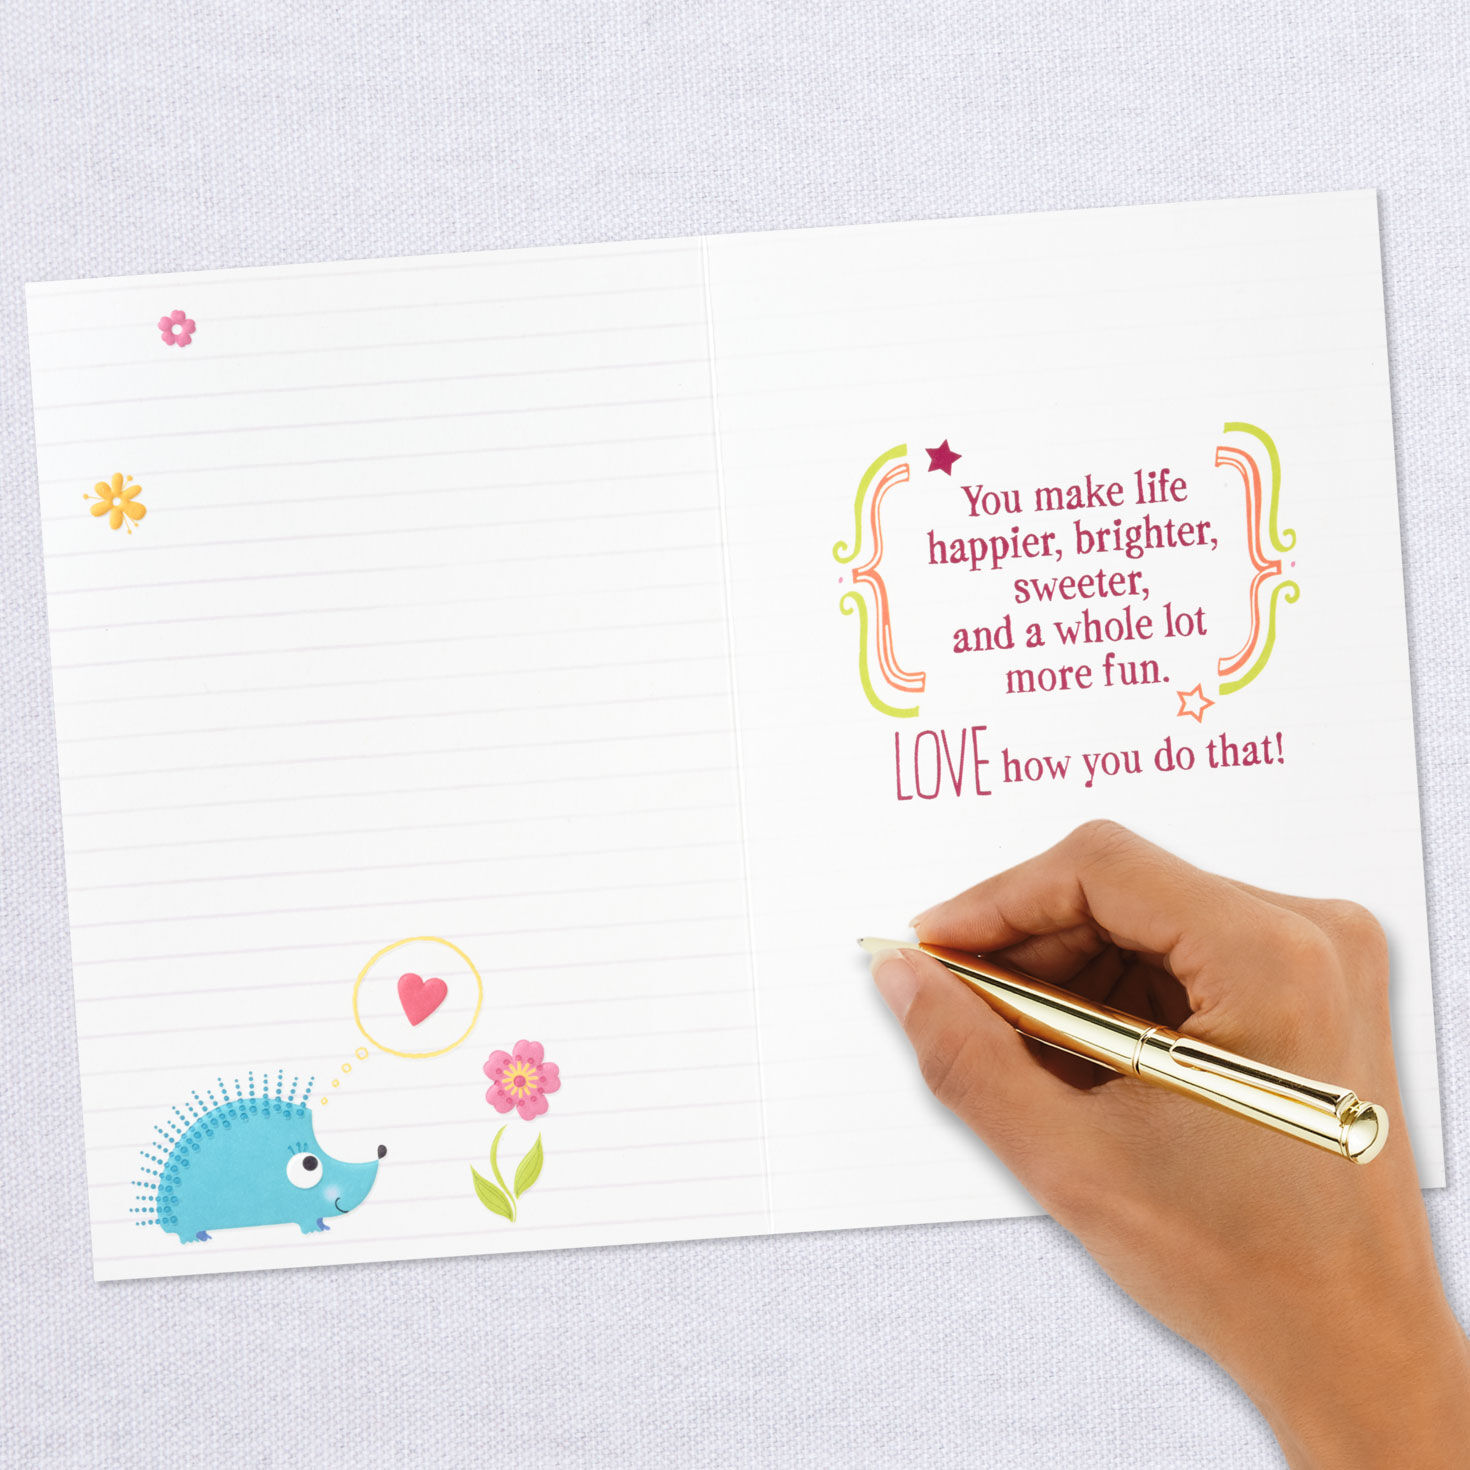 You make life
happier, brighter,
sweeter,
and a whole lot
more fun.
LOVE how you do that!